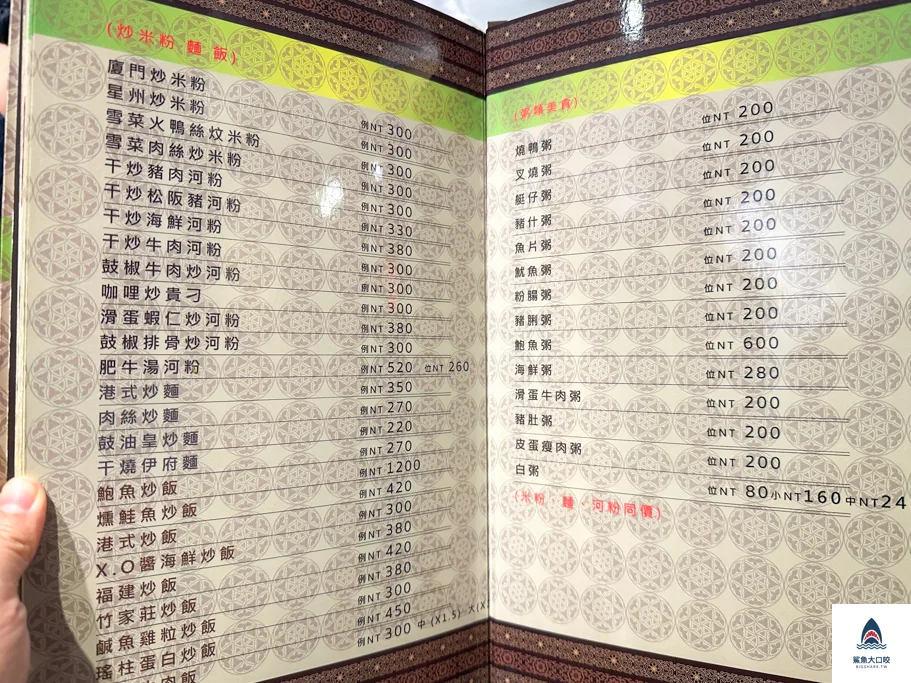 (炒米粉 麵 飯)
廈門炒米粉 例NT 300
星州炒米粉 例NT 300
雪菜火鴨絲炆米粉 例NT 300
雪菜肉絲炒米粉 例NT 300
干炒豬肉河粉 例NT 300
干炒松阪豬河粉 例NT 330
干炒海鮮河粉 例NT 380
干炒牛肉河粉 例NT 300
鼓椒牛肉炒河粉 例NT 300
咖哩炒貴刁 例NT 300
滑蛋蝦仁炒河粉 例NT 380
鼓椒排骨炒河粉 例NT 300
肥牛湯河粉 例NT 520 位NT 260
港式炒麵 例NT 350
肉絲炒麵 例NT 270
鼓油皇炒麵 例NT 220
干燒伊府麵 例NT 270
鮑魚炒飯 例NT 1200
燻鮭魚炒飯 例NT 420
港式炒飯 例NT 300
X.O醬海鮮炒飯 例NT 380
福建炒飯 例NT 420
竹家莊炒飯 例NT 380
鹹魚雞粒炒飯 例NT 300
瑤柱蛋白炒飯 例NT 450
肉炒飯 例NT 300 中(X1.5)
(粥燴美食)
燒鴨粥 位NT 200
叉燒粥 位NT 200
艇仔粥 位NT 200
豬什粥 位NT 200
魚片粥 位NT 200
魷魚粥 位NT 200
粉腸粥 位NT 200
豬脷粥 位NT 200
鮑魚粥 位NT 600
海鮮粥 位NT 280
滑蛋牛肉粥 位NT 200
豬肚粥 位NT 200
皮蛋瘦肉粥 位NT 200
白粥 位NT 80 小NT 160 中NT 24
(米粉、麵、河粉同價)
鯊魚大口咬
BIGSHARK.TW